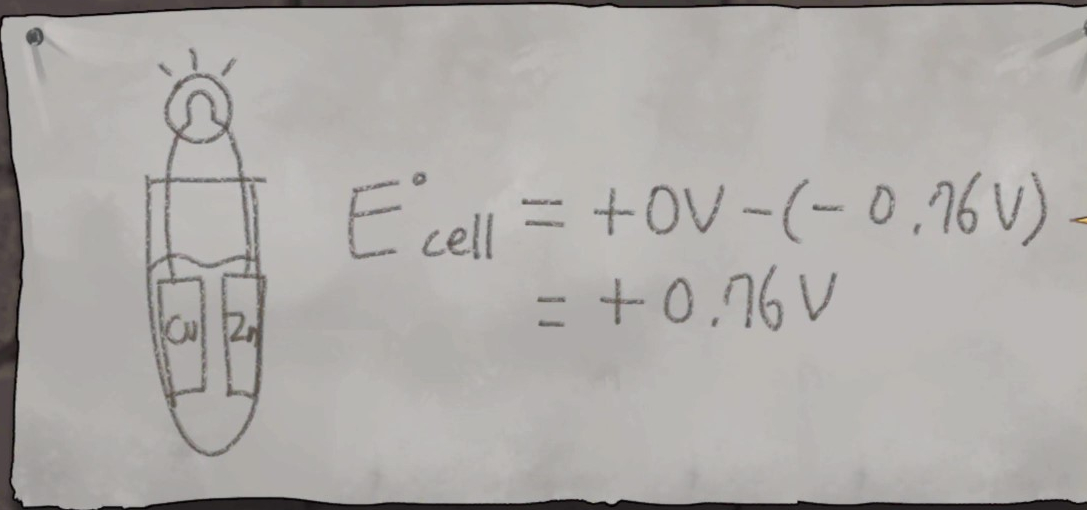 E°cell = +0V-(-0.76V)
= +0.76V
Cu Zn